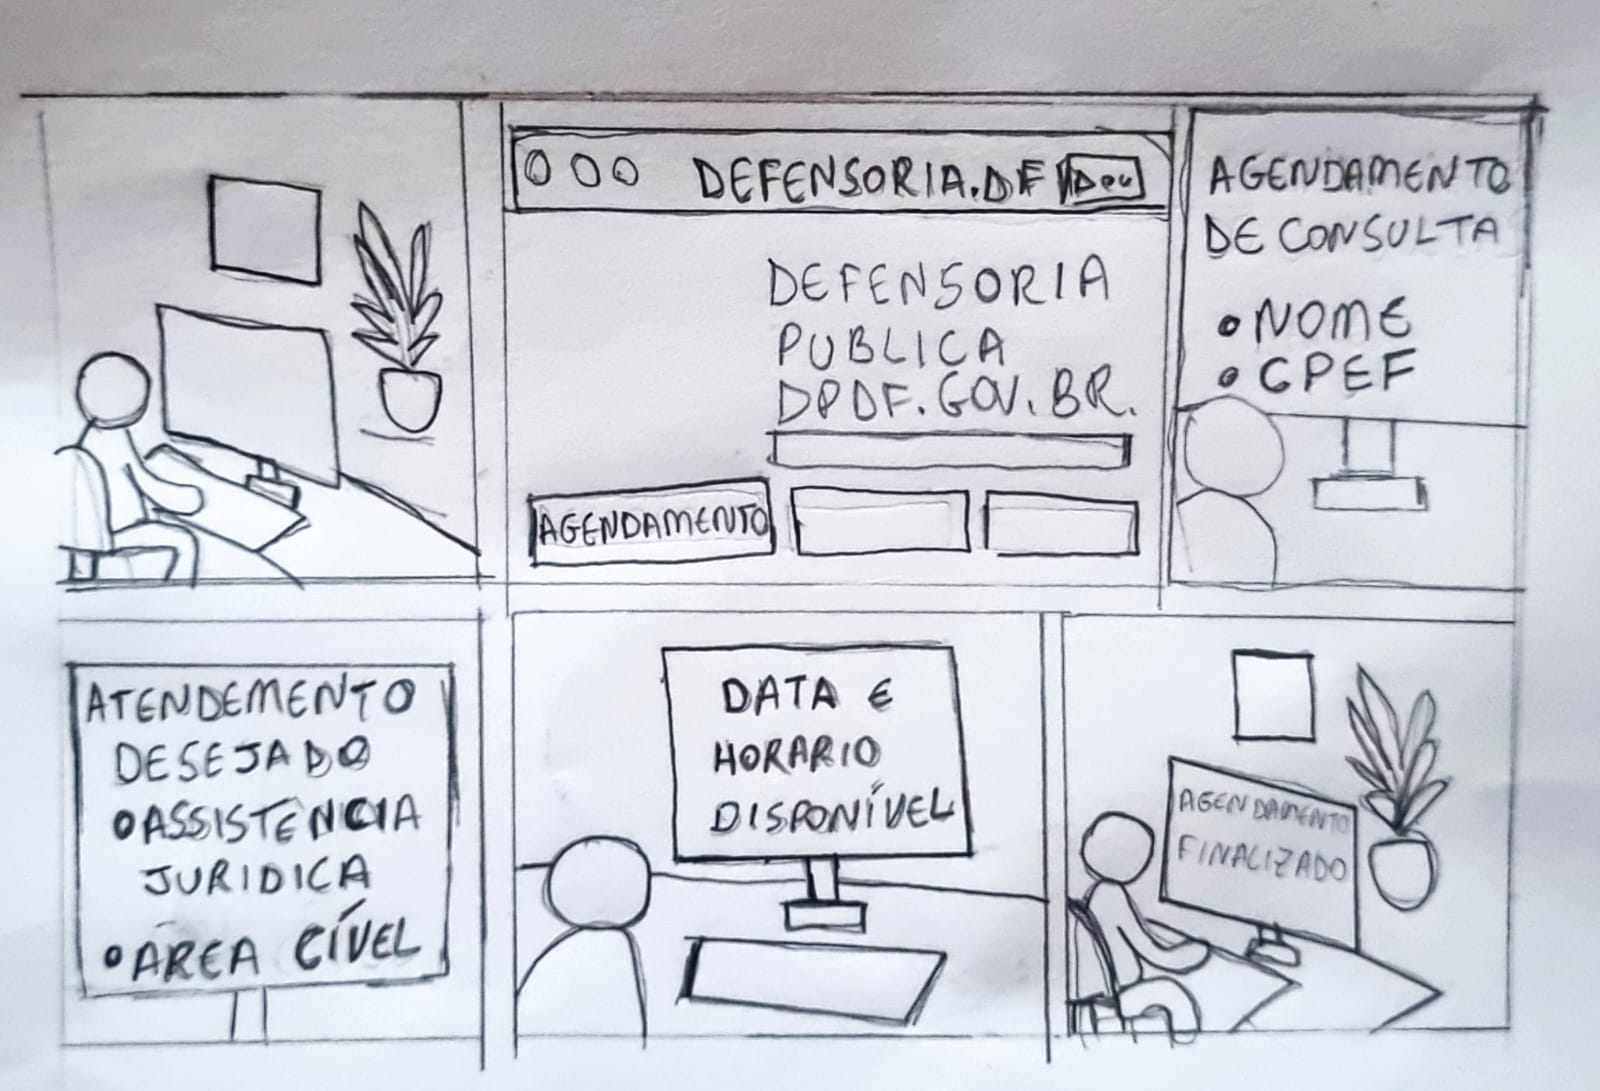 DEFENSORIA.DF
DEFENSORIA
PUBLICA
DPDF.GOV.BR.
AGENDAMENTO
AGENDAMENTO
DE CONSULTA
• NOME
• CPEF
ATENDEMENTO
DESEJADO
• ASSISTENCIA
JURIDICA
• AREA CÍVEL
DATA E
HORARIO
DISPONÍVEL
AGENDAMENTO
FINALIZADO